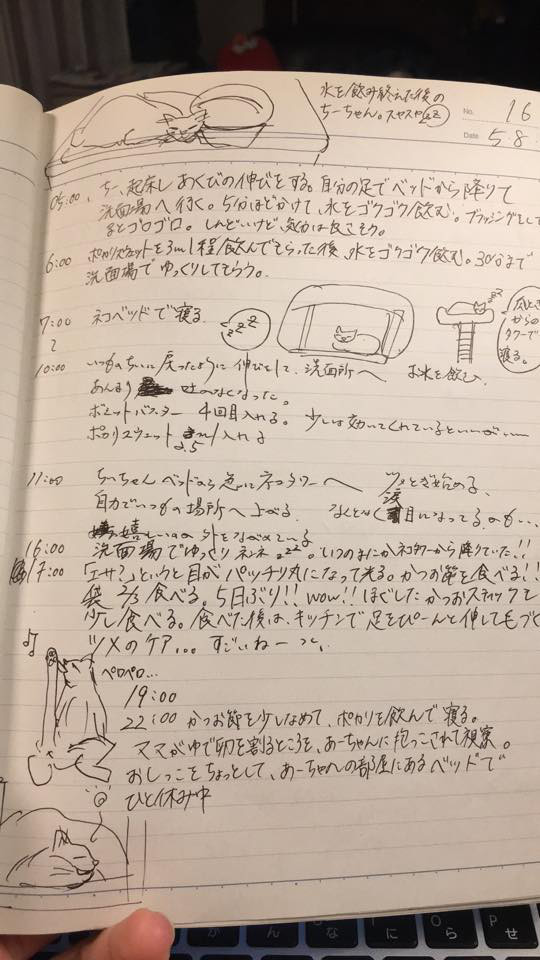 水を飲み終えた後の
ちーちゃん。スヤスヤzz
No. 16
Date 5 8
05:00 ち、起床しあくびの伸びをする。自分の足でベッドから降りて
洗面場へ行く。5分ほどかけて、水をゴクゴク飲む。ブラッシングをして
ゴロゴロ。しんどいけど、気分は良さそう。
6:00 ポカリスウェットを3ml程飲んでもらった後、水をゴクゴク飲む。30分まで
洗面場でゆっくりしてもらう。
7:00 ネコベッドで寝る zzz
爪とぎ
からの
タワーで
寝る。
zzz
10:00 いつものちぃに戻ったように伸びをして、洗面所へ お水を飲む、
あんまり 吐かなくなった。
ボミットバスター 4回目入れる。少しは効いてくれているといいが……
ポカリスウェット 2.5ml入れる
11:00 ちぃちゃんベッドから急にネコタワーへ ツメとぎ始める、
自力でいつもの場所へ上がる。 なんとなく涙目になってるのも…
嬉しいのか外をながめている
16:00 洗面場でゆっくりネンネzzz。いつのまにかネコタワーから降りていた!!
17:00 「エサ?」というと目がパッチリ丸になって光る。かつお節を食べる!!
袋 2/3 食べる。5日ぶり!! wow!! ほぐしたかつおスティックを
少し食べる。食べた後は、キッチンで足をぴーんと伸して毛づく
ツメのケア… すごいねーっ、
♪
ペロペロ…
19:00
22:00 かつお節を少しなめて、ポカリを飲んで寝る。
ママがゆで卵を割るところを、あーちゃんに抱っこされて視察。
おしっこをちょっとして、あーちゃんの部屋にあるベッドで
ひと休み中
か
ん
な
に
O
ら
P
せ